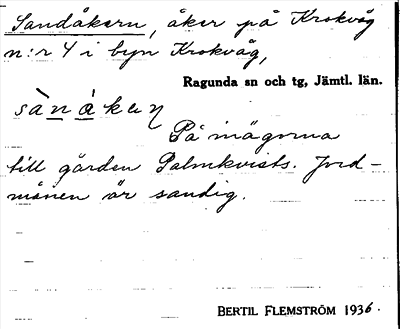 Sandåkern, åker på Krokvåg
n:r 4 i byn Krokvåg,
Ragunda sn och tg, Jämtl. län.
sànàkeɳ
På inägorna
till gården Palmkvists. Jord-
månen är sandig.
BERTIL FLEMSTRÖM 1936.